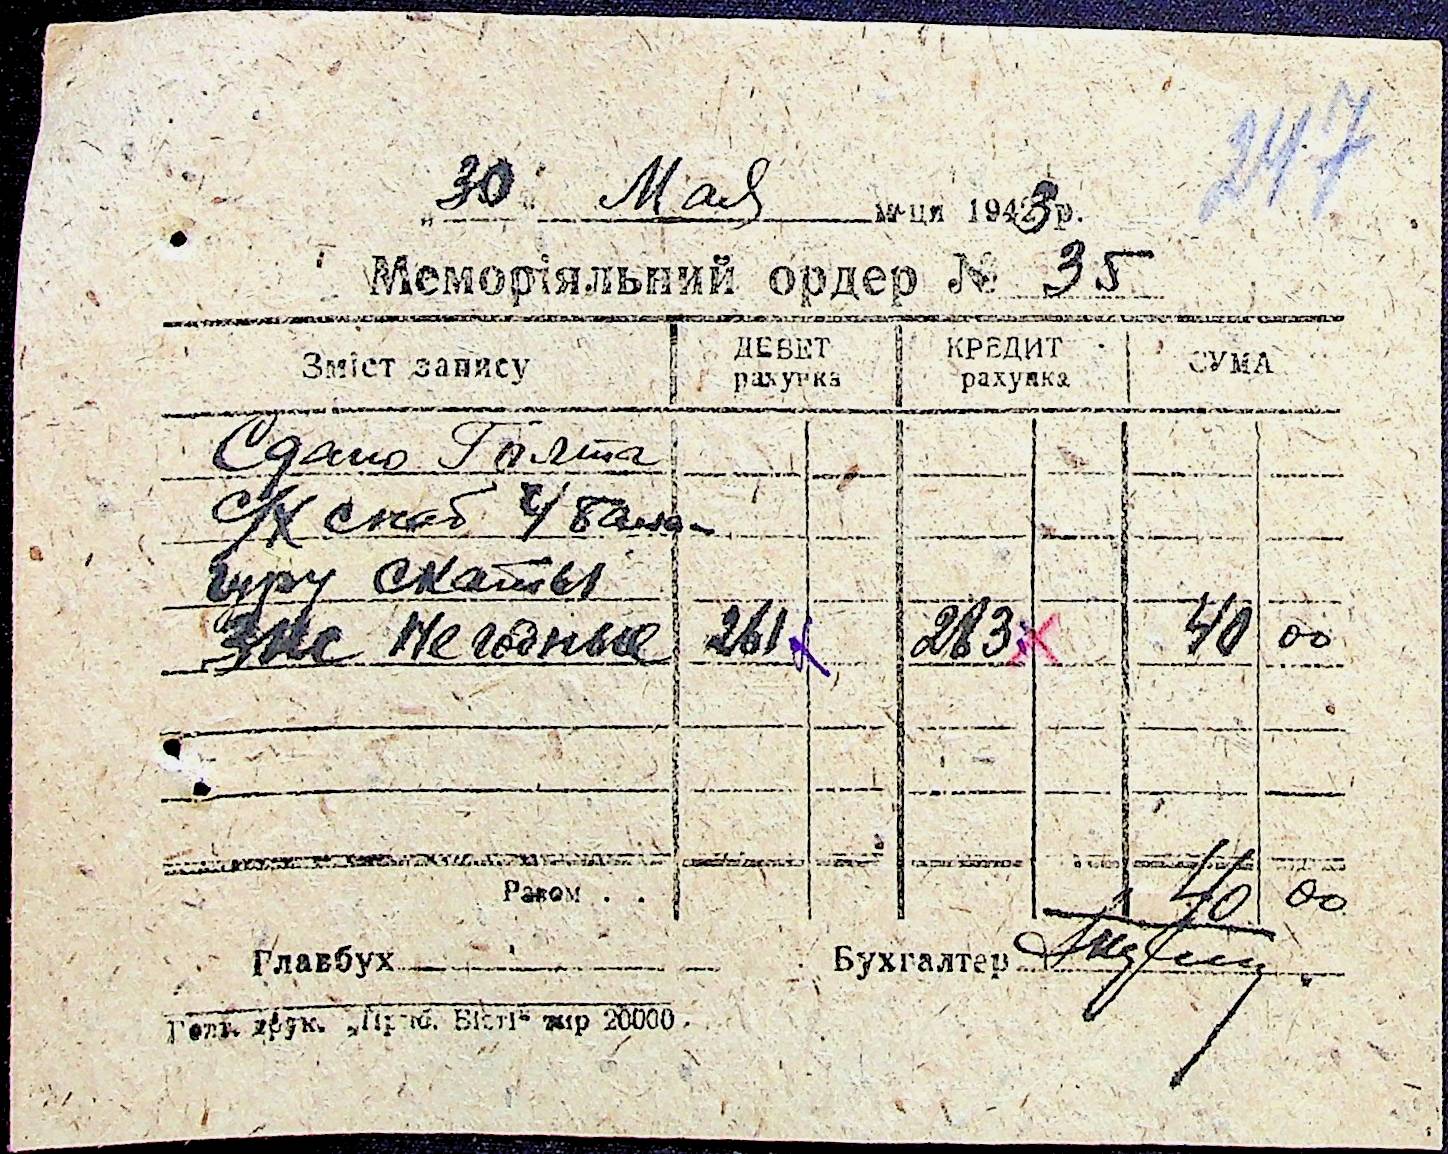 247
„30“ Мая м-ця 1943 р.
Меморіяльний ордер № 35
Зміст запису ДЕБЕТ рахунка КРЕДИТ рахунка СУМА
Сдано Голта
с/х снаб ч/
скаты
Негодные 261 263 40 00
Разом . . 40 00
Главбух Бухгалтер
Голт. друк. „Приб. Вісті“ тир 20000